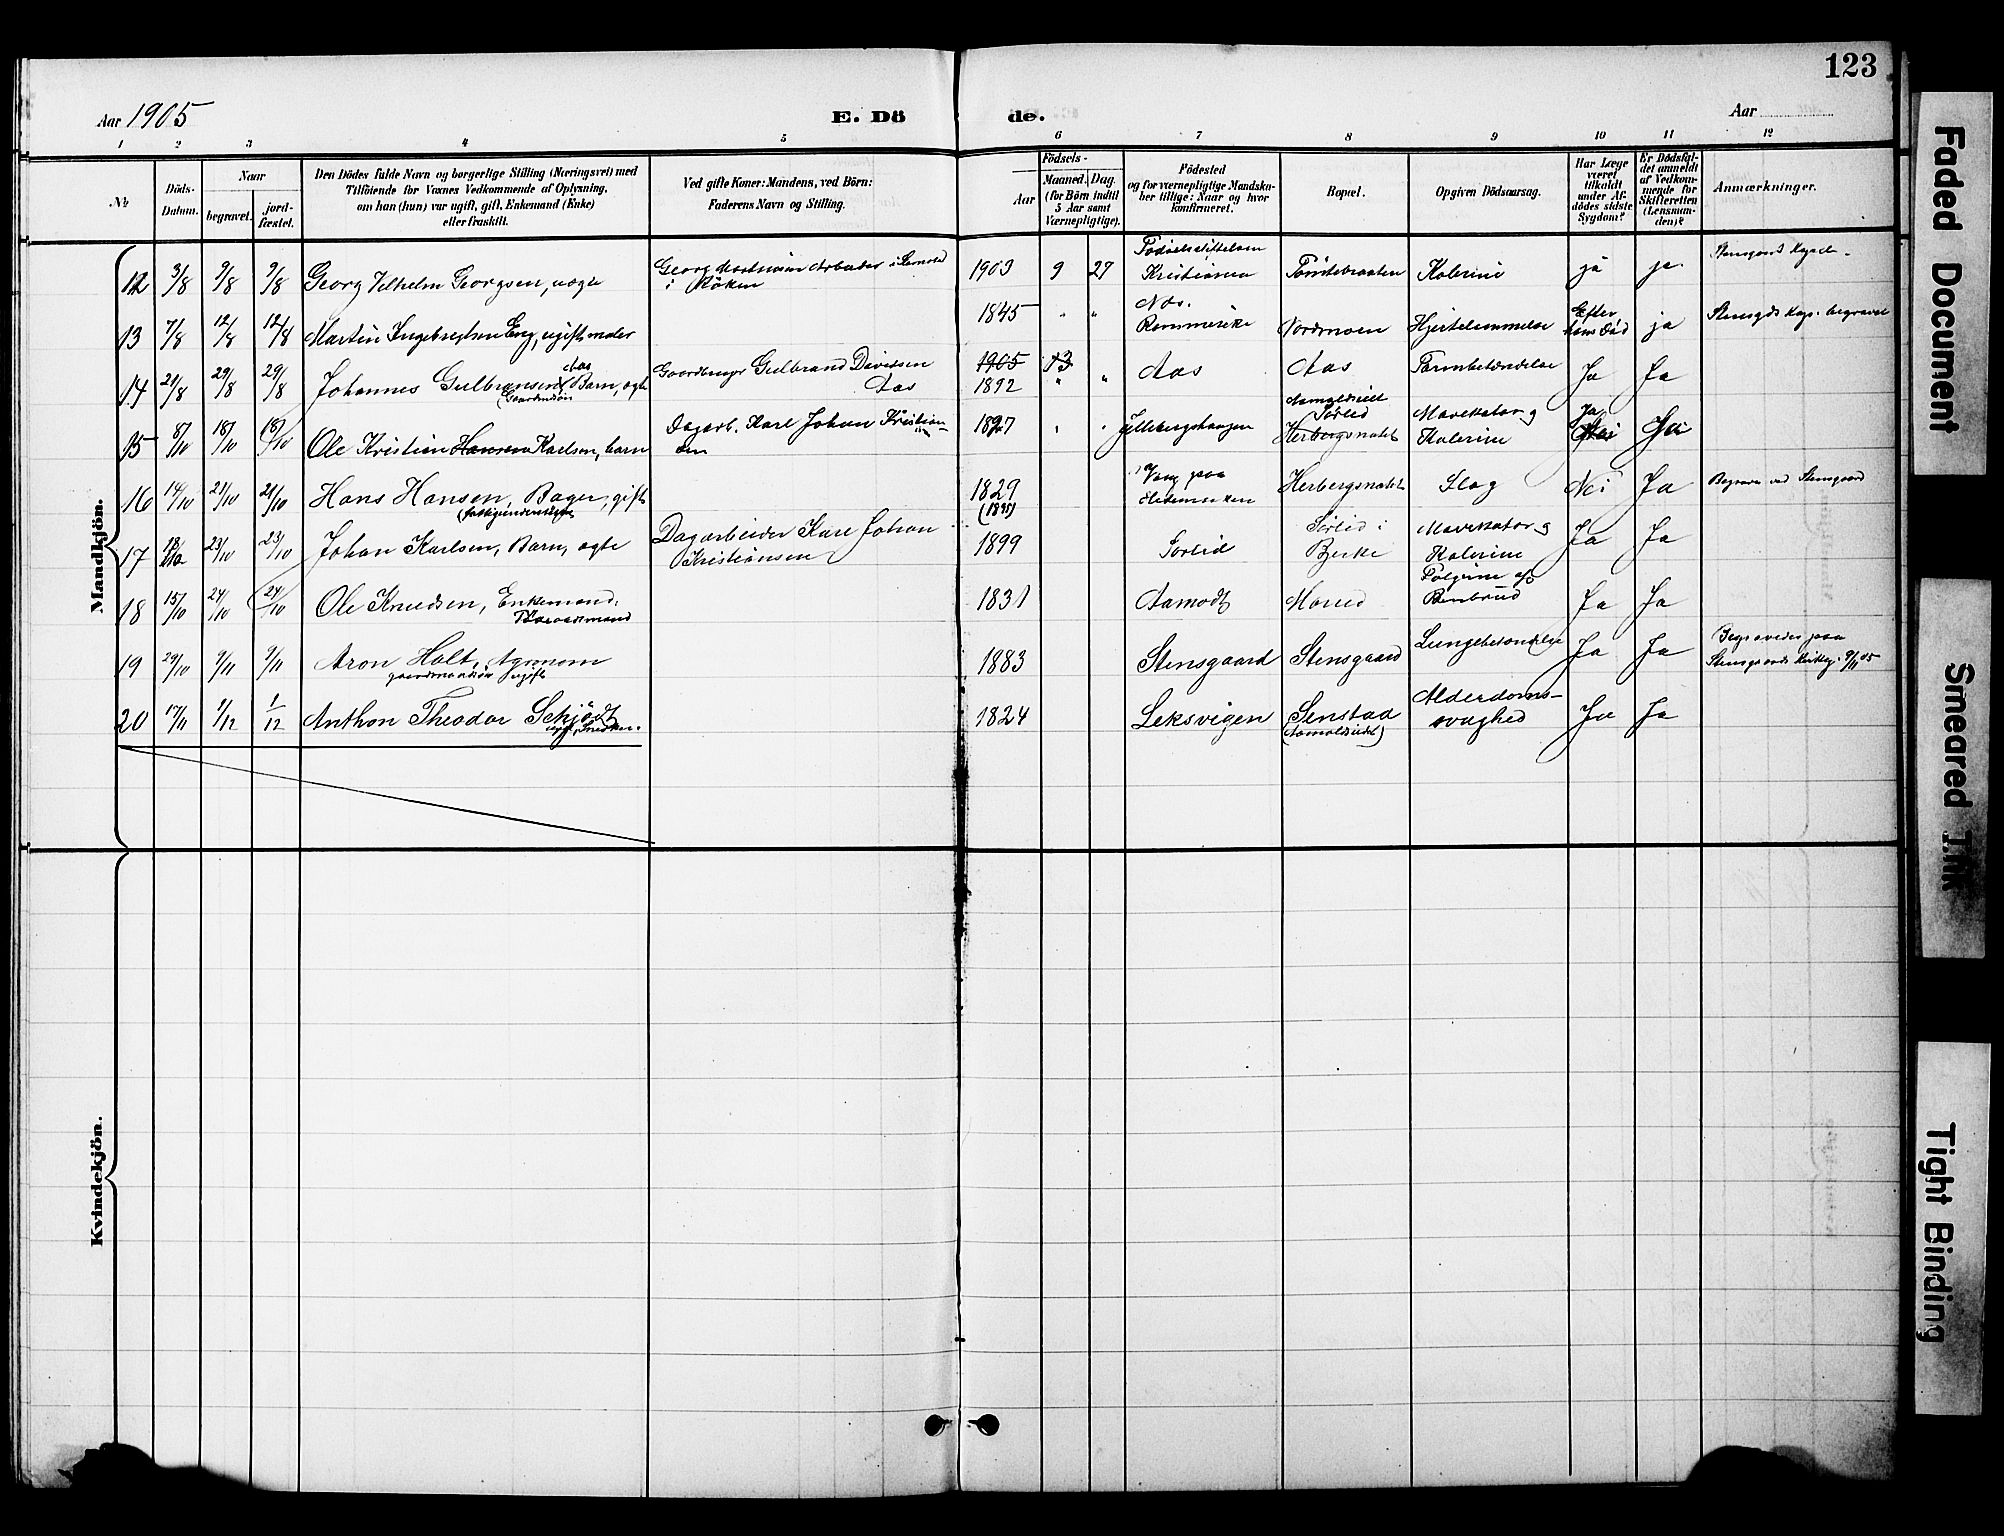 123
Aar 1905
E. Dö
de.
Aar
1 2 3 4 5 6 7 8 9 10 11 12
No
Döds-Datum.
Naar
begravet.
jord-fæstet.
Den Dödes fulde Navn og borgerlige Stilling (Næringsvei) med
Tilföiende for Voxnes Vedkommende af Oplysning,
om han (hun) var ugift, gift, Enkemand (Enke)
eller fraskilt.
Ved gifte Koner: Mandens, ved Börn:
Faderens Navn og Stilling.
Födsels-
Aar
Maaned. Dag.
(for Börn indtil
5 Aar samt
Værnepligtige).
Födested
og for værnepligtige Mandska-
ber tillige: Naar og hvor
konfirmeret.
Bopæl.
Opgiven Dödsaarsag.
Har Læge
været
tilkaldt
under Af-
dödes sidste
Sygdom?
Er Dödsfal-
det anmeldt
af Vedkom-
mende for
Skifteretten
(Lensman-
den)?
Anmærkninger.
Mandkjön.
12 3/8 9/8 9/8 Georg Vilhelm Georgsen, uægte Georg Arbeider i Födselsstiftelsen
i Röken 1903 9 27 Kristiania Kolerine ja ja Stensgaard Kapel
13 7/8 12/8 12/8 Martin Ingebretsen Eng, ugift maler 1845 " " Nes. Romerike Nordmoen Hjertelammelse Efter hans Död ja Stensgds Kap. begravet
14 21/8 29/8 29/8 Johannes Gulbransen Aas Barn, ægte Gaardbruger Gulbrand Davidsen
(Gaardmandssön) Aas 1905 13 1892 " " Aas Aas Tarmbetændelse Ja Ja
15 8/10 18/10 18/10 Ole Kristian Hansen Karlsen, barn Dagarb. Karl Johan Kristian-
sen 1897 " " Sörlid Herbergsnatet Mavekatar og Kolerine Ja Nei Ja
16 14/10 21/10 21/10 Hans Hansen, Bager, gift 1829 Vang paa Hedemarken Herbergsnatet Slag Nei Ja Begravet ved Stensgaard
17 18/10 23/10 23/10 Johan Karlsen, Barn, ægte Dagarbeider Karl Johan
Kristiansen 1899 Sörlid Sörlid i Bjerke Mavekatar og Kolerine Ja Ja
18 15/10 24/10 24/10 Ole Knudsen, Enkemand, 1831 Aamodt Morud Fölgerne af Benbrud Ja Ja
19 29/10 9/11 9/11 Aron Holt, Agronom
ugift 1883 Stensgaard Stensgaard Lungebetændelse Ja Ja Begravedes paa
Stensgaards Kirkeg. 9/11 05
20 17/11 1/12 1/12 Anthon Theodor Schjödt
ugift, Snedker. 1824 Leksvigen Senstad Alderdoms-
svaghed Ja Ja
Kvindekjön.
Faded Document
Smeared Ink
Tight Binding